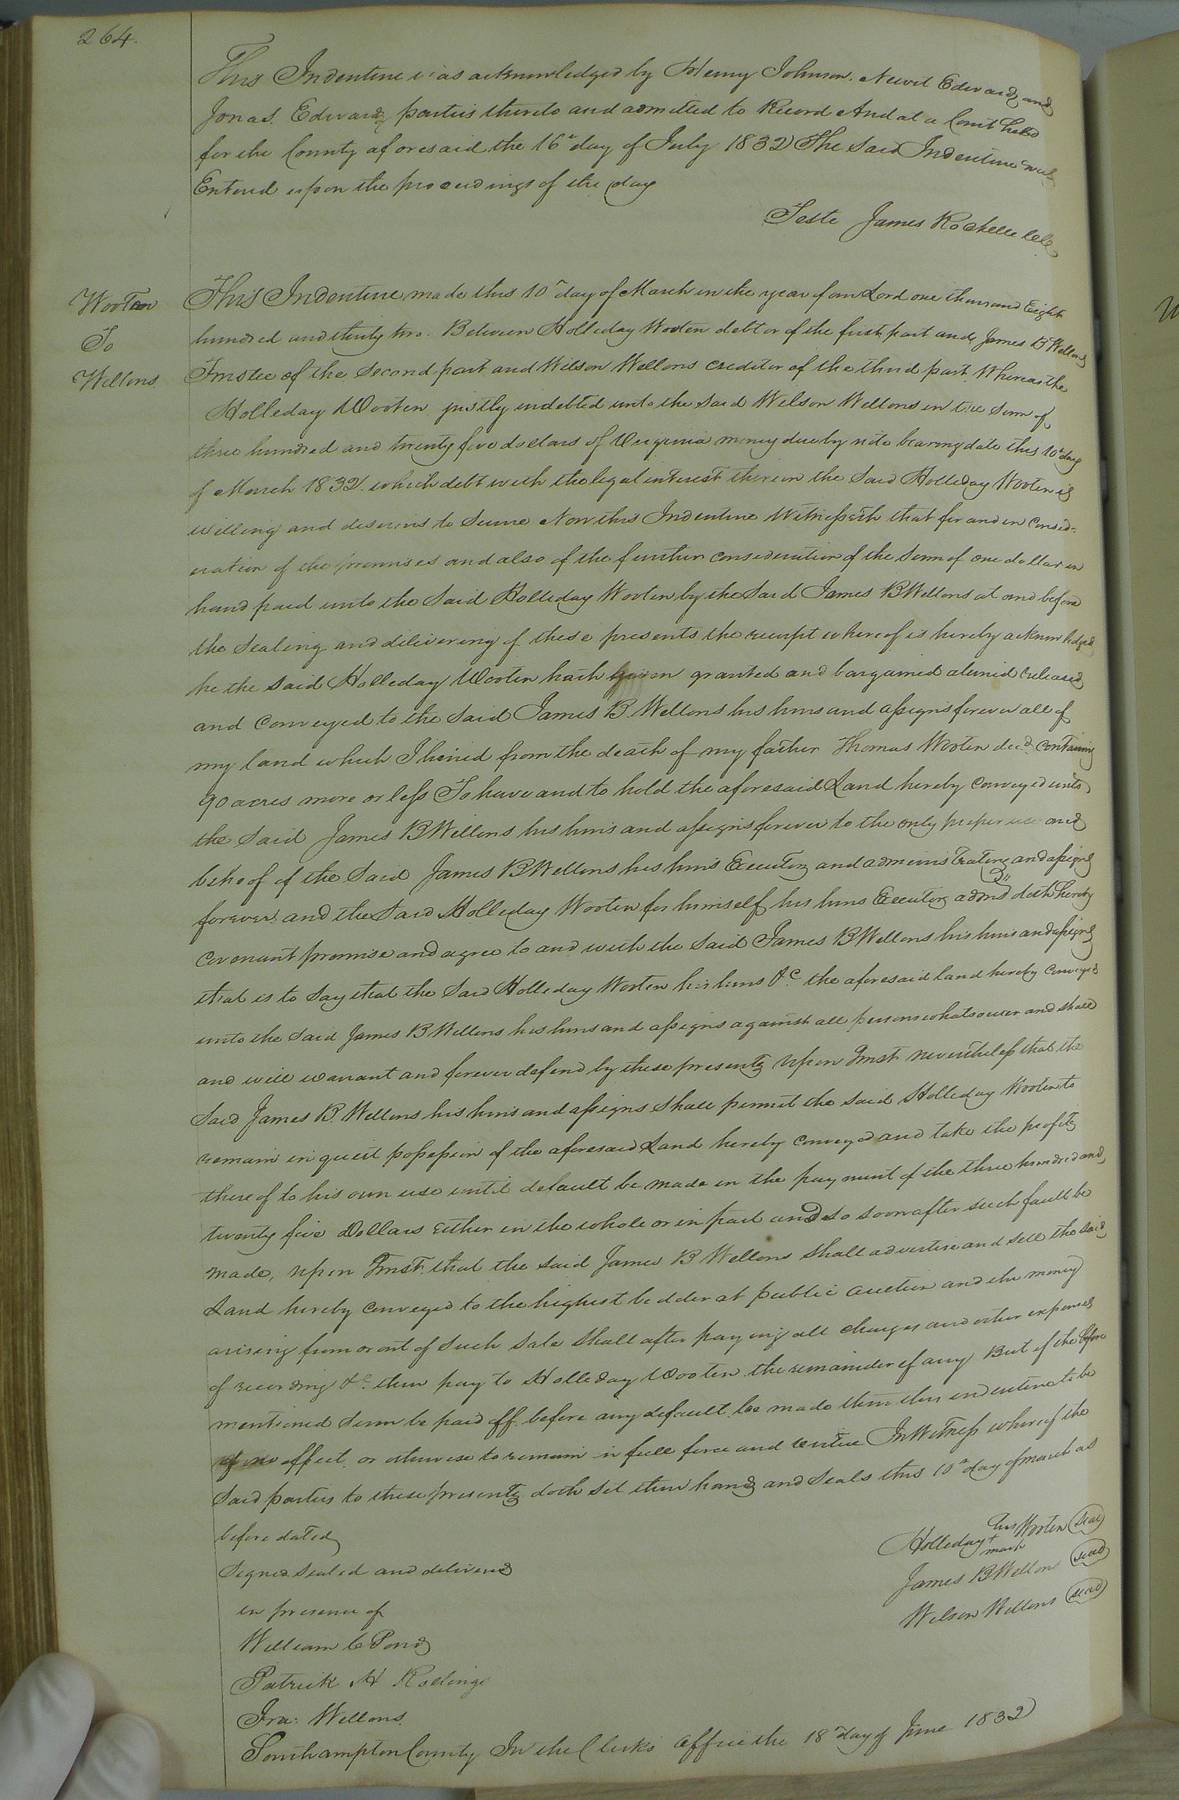 264.
This Indenture was acknowledged by Henry Johnson. Newit Edwards and
Jonas. Edwards parties thereto and admitted to Record And at a Court held
for the County aforesaid the 16th day of July 1832 The Said Indenture was
Entered upon the proceedings of the day
Teste James Rochelle clk
Wooten
To
Wellons
This Indenture made this 10th day of March in the year of our Lord one thousand Eight
hundred and thirty two. Between Holleday Wooten debtor of the first part and James B Wellons
Trustee of the Second part and Wilson Wellons creditor of the third part. Whereas the
Holleday Wooten justly indebted unto the Said Welson Wellons in the Sum of
three hundred and twenty five dollars of Virginia money due by note bearing date this 10th day
of March 1832. which debt with the legal interest thereon the Said Holleday Wooten is
willing and desirous to Secure Now this Indenture Witnesseth that for and in Consid-
eration of the promises and also of the further consideration of the Sum of one dollar in
hand paid unto the Said Holleday Wooten by the Said James B Wellons at and before
the Sealing and delivering of these presents the receipt whereof is hereby acknowledged
he the Said Holleday Wooten hath given granted and bargained aliened released
and Conveyed to the Said James B Wellons his heirs and assigns forever all of
my land which I heired from the death of my father Thomas Wooten decd. Containing
90 acres more or less To have and to hold the aforesaid Land hereby Conveyed unto
the Said James B Wellons his heirs and assigns forever to the only proper use and
behoof of the Said James B Wellons his heirs Executors and administrators and assigns
forever. and the Said Holleday Wooten for himself his heirs Executors admrs doth hereby
Covenant promise and agree to and with the Said James B Wellons his heirs and assigns
that is to Say that the Said Holleday Wooten his heirs &c the aforesaid land hereby Conveyed
unto the Said James B Wellons his heirs and assigns against all persons whatsoever and shall
and will warrant and forever defend by these presents Upon Trust nevertheless that the
Said James B. Wellons his heirs and assigns Shall permit the Said Holleday Wooten to
remain in quiet possession of the aforesaid Land hereby Conveyed and take the profits
thereof to his own use until default be made in the payment of the three hundred and
twenty five Dollars Either in the whole or in part and so soon after such fault be
made, Upon Trust that the said James B Wellons Shall advertise and sell the said
Land hereby Conveyed to the highest bidder at public auction and the money
arising from or out of Such Sale Shall after paying all charges and other expenses
of recording &c then pay to Holleday Wooten the remainder if any But if the before
mentioned Sum be paid off before any default be made then this indenture to be
of no effect or otherwise to remain in full force and virtue In Witness whereof the
Said parties to these presents doth Set their hands and Seals this 10th day of march as
before dated
Signed Sealed and delivered
in presence of
William C Pond
Patrick H
Ira: Wellons.
Holleday his + mark Wooten Seal
James B Wellons seal
Welson Wellons seal
Southampton County In the Clerks office the 18th day of June 1832